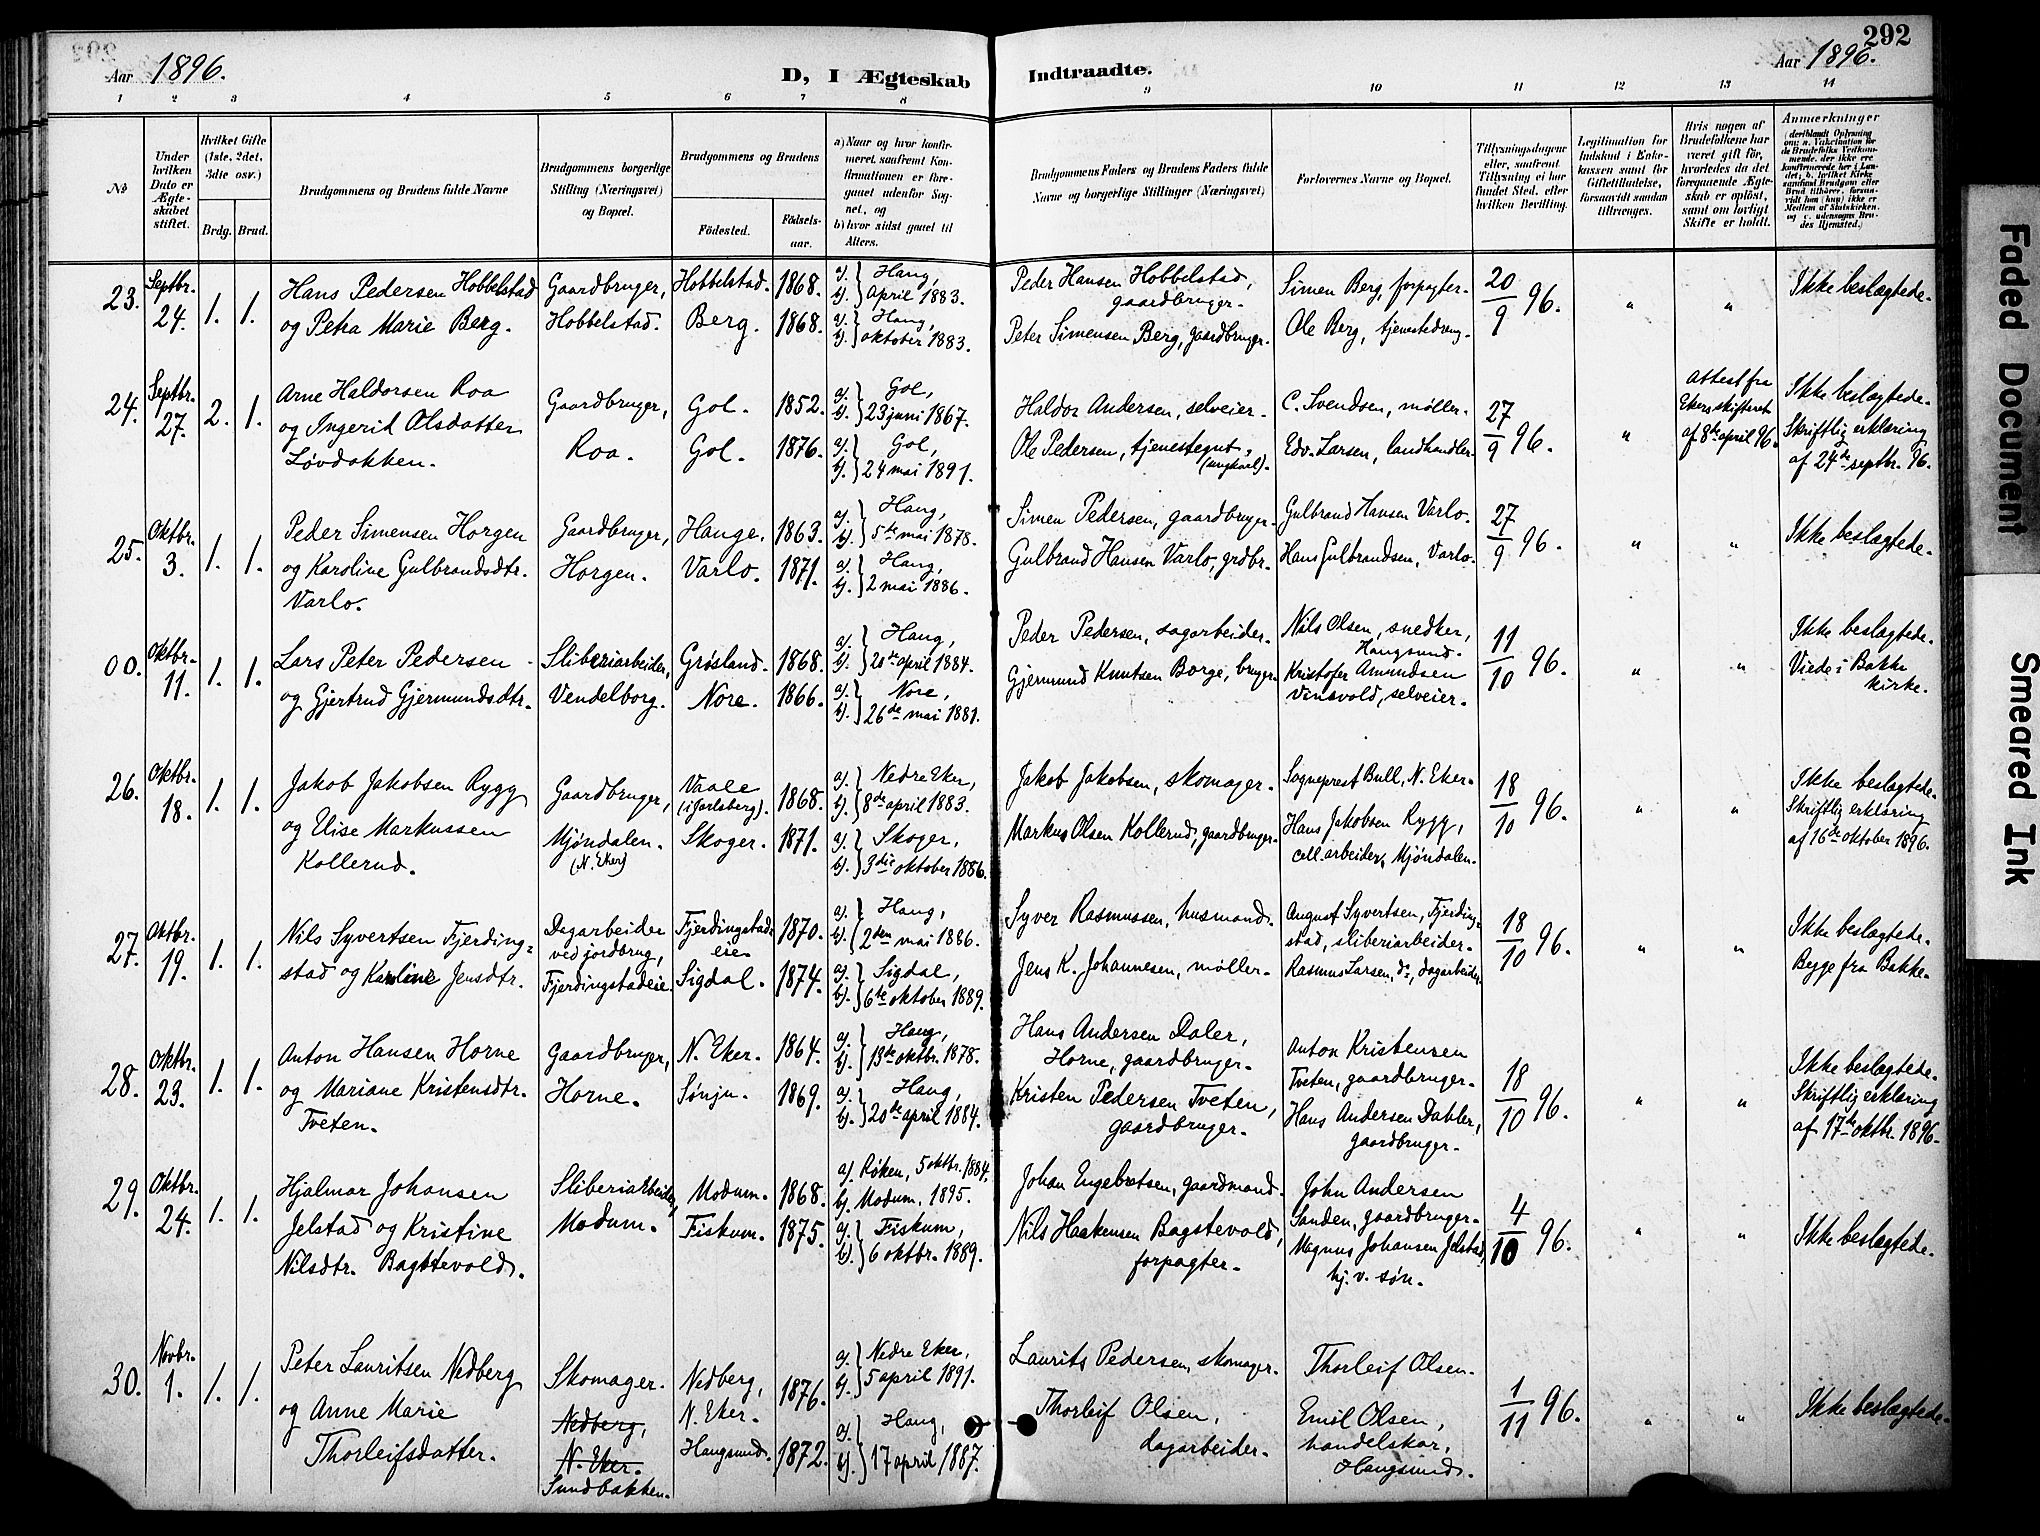 292
Aar 1896.
D, I Ægteskab
Indtraadte.
Aar 1896.
1 2 3 4 5 6 7 8 9 10 11 12 13 14
No
Under hvilken Dato er Ægteskabet stiftet.
Hvilket Gifte (1ste, 2det, 3die osv.)
Brdg. Brud.
Brudgommens og Brudens fulde Navne
Brudgommens borgerlige Stilling (Næringsvei) og Bopæl.
Brudgommens og Brudens
Födested.
Födsels-aar.
a) Naar og hvor konfirmeret, saafremt Konfirmationen er foregaaet udenfor Sognet, og
b) hvor sidst gaaet til Alters.
Brudgommens Faders og Brudens Faders fulde Navne og borgerlige Stillinger (Næringsvei)
Forlovernes Navne og Bopæl.
Tillysningsdagene eller, saafremt Tillysning ei har fundet Sted, efter hvilken Bevilling.
Legitimation for Indskud i Enkekassen samt for Giftetilladelse, forsaavidt saadan tiltrænges.
Hvis nogen af Brudefolkene har været gift før, hvorledes da det foregaaende Ægteskab er opløst, samt om lovligt Skifte er holdt.
Anmærkninger
23.
Septbr. 24.
1. 1.
Hans Pedersen Hobbelstad
og Petra Marie Berg.
Gaardbruger,
Hobbelstad.
Hobbelstad. 1868.
Berg. 1868.
a). b). } Haug, April 1883.
a). b). } Haug, oktober 1883.
Peder Hansen Hobbelstad, gaardbruger.
Peter Simensen Berg, gaardbruger.
Simen Berg, forpagter.
Ole Berg, tjenestedreng.
20/9 96.
" "
Ikke beslægtede.
24.
Septbr. 27.
2. 1.
Arne Haldorsen Roa
og Ingerid Olsdatter
Løvdokken.
Gaardbruger,
Roa.
Gol. 1852.
Gol. 1876.
a). b). } Gol, 23 juni 1867.
a). b). } Gol, 24 mai 1891.
Haldor Andersen, selveier.
Ole Pedersen, tjenestegut, (ungkarl).
C. Svendsen, møller.
Edv. Larsen, landhandler.
27/9 96.
"
Attest fra
Ekers skifteret
af 8de april 96.
Ikke beslægtede.
Skriftlig erklæring
af 24de septbr. 96.
25.
Oktbr. 3.
1. 1.
Peder Simensen Horgen
og Karoline Gulbrandsdtr.
Varlo.
Gaardbruger,
Horgen.
Hauge. 1863.
Varlo. 1871.
a). b). } Haug, 5te mai 1878.
a). b). } Haug, 2 mai 1886.
Simen Pedersen, gaardbruger.
Gulbrand Hansen Varlo, grdbr.
Gulbrand Hansen Varlo.
Hans Gulbrandsen, Varlo.
27/9 96.
" "
Ikke beslægtede.
00.
Oktbr. 11.
1. 1.
Lars Peter Pedersen
og Gjertrud Gjermundsdtr.
Sliberiarbeider,
Vendelborg.
Grøsland. 1868.
Nore. 1866.
a). b). } Haug, 20de april 1884.
a). b). } Nore, 26de mai 1881.
Peder Pedersen, sagarbeider.
Gjermund Knutsen Borge, bruger.
Nils Olsen, snedker,
Haugsund.
Kristofer Amundsen
Vinsvold, selveier.
11/10 96.
" "
Ikke beslægtede.
Viede i Bakke
kirke.
26.
Oktbr. 18.
1. 1.
Jakob Jakobsen Rygg
og Elise Markussen
Kollerud.
Gaardbruger,
Mjøndalen.
(N. Eker)
Vaale (i Jarlsberg). 1868.
Skoger. 1871.
a). b). } Nedre Eker, 8de april 1883.
a). b). } Skoger, 3die oktober 1886.
Jakob Jakobsen, skomager.
Markus Olsen Kollerud, gaardbruger.
Sogneprest Bull, N. Eker.
Hans Jakobsen Rygg,
cell. arbeider, Mjøndalen.
18/10 96.
" "
Ikke beslægtede.
Skriftlig erklæring
af 16de oktober 1896.
27.
Oktbr. 19.
1. 1.
Nils Syvertsen Fjerding=
stad og Karoline Jensdtr.
Dagarbeider
ved jordbrug,
Fjerdingstadeie.
Fjerdingstad eie 1870.
Sigdal. 1874.
a). b). } Haug, 2den mai 1886.
a). b). } Sigdal, 6te oktober 1889.
Syver Rasmussen, husmand.
Jens K. Johannesen, møller.
August Syvertsen, Fjerding-
stad, sliberiarbeider.
Rasmus Larsen, do, dagarbeider.
18/10 96.
" "
Ikke beslægtede.
Begge fra Bakke.
28.
Oktbr. 23.
1. 1.
Anton Hansen Horne
og Mariane Kristensdtr.
Tveten.
Gaardbruger,
Horne.
N. Eker. 1864.
Sønju. 1869.
a). b). } Haug, 13de oktbr. 1878.
a). b). } Haug, 20de april 1884.
Hans Andersen Daler,
Horne, gaardbruger.
Kristen Pedersen Tveten,
gaardbruger.
Anton Kristensen
Tveten, gaardbruger.
Hans Andersen Dahler,
gaardbruger.
18/10 96.
" "
Ikke beslægtede.
Skriftlig erklæring
af 17de oktbr. 1896.
29.
Oktbr. 24.
1. 1.
Hjalmar Johansen
Jelstad og Kristine
Nilsdtr. Bagstevold.
Sliberiarbeider,
Modum.
Modum. 1868.
Fiskum. 1875.
a). Røken, 5 oktbr. 1884.
b). Modum. 1895.
a). b). } Fiskum, 6 oktbr. 1889.
Johan Engebretsen, gaardmand.
Nils Haakensen Bagstevold,
forpagter.
John Andersen
Sanden, gaardbruger.
Magnus Johansen Jelstad,
hj. v. søn.
4/10 96.
" "
Ikke beslægtede.
30.
Novbr. 1.
1. 1.
Peter Lauritsen Nedberg
og Anne Marie
Thorleifsdatter.
Skomager.
Nedberg,
N. Eker.
Sundbakken.
Nedberg, N. Eker. 1876.
Haugsund. 1872.
a). b). } Nedre Eker, 5 april 1891.
a). b). } Haug, 17 april 1887.
Laurits Pedersen, skomager.
Thorleif Olsen,
dagarbeider.
Thorleif Olsen.
Emil Olsen,
handelskar,
Haugsund.
1/11 96.
" "
Ikke beslægtede.
Faded Document
Smeared Ink